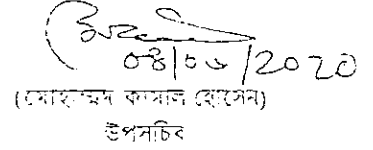 08/06/2020
(মোহাম্মদ কামাল হোসেন)
উপসচিব